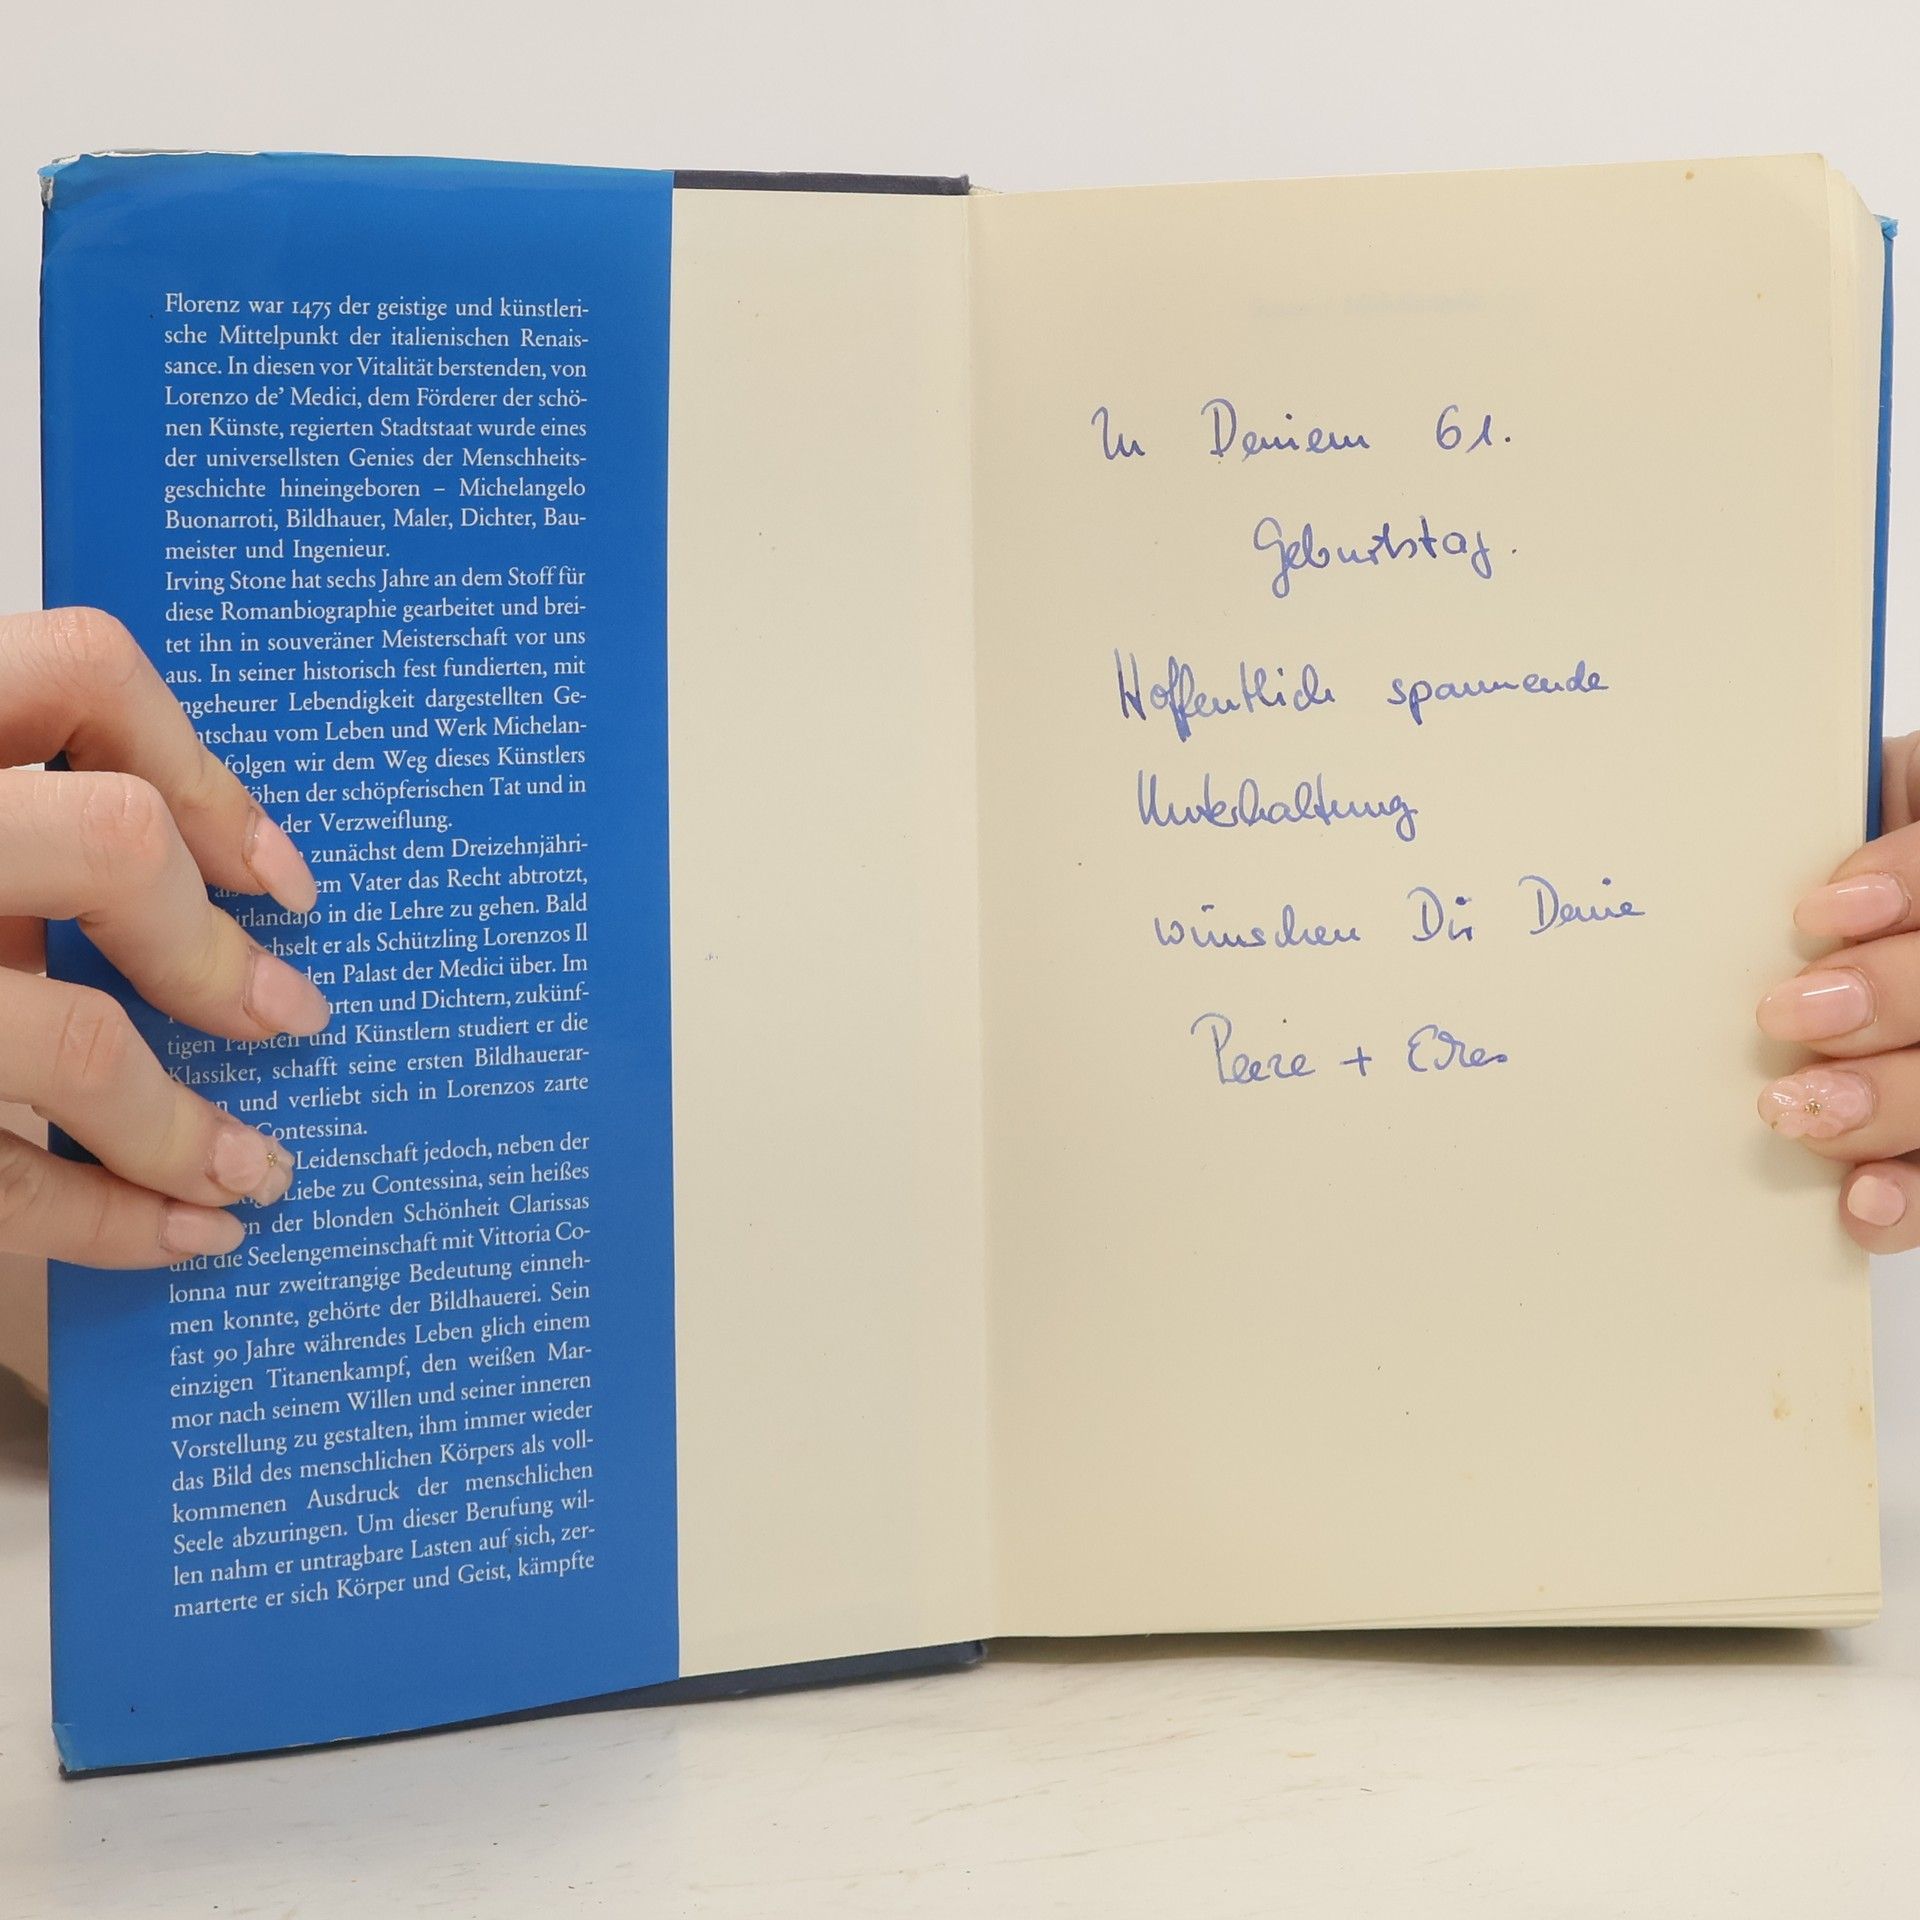 Florenz war 1475 der geistige und künstleri-
sche Mittelpunkt der italienischen Renais-
sance. In diesen vor Vitalität berstenden, von
Lorenzo de’ Medici, dem Förderer der schö-
nen Künste, regierten Stadtstaat wurde eines
der universellsten Genies der Menschheits-
geschichte hineingeboren – Michelangelo
Buonarroti, Bildhauer, Maler, Dichter, Bau-
meister und Ingenieur.
Irving Stone hat sechs Jahre an dem Stoff für
diese Romanbiographie gearbeitet und brei-
tet ihn in souveräner Meisterschaft vor uns
aus. In seiner historisch fest fundierten, mit
ngeheurer Lebendigkeit dargestellten Ge-
tschau vom Leben und Werk Michelan-
folgen wir dem Weg dieses Künstlers
öhen der schöpferischen Tat und in
der Verzweiflung.
zunächst dem Dreizehnjähri-
em Vater das Recht abtrotzt,
irlandajo in die Lehre zu gehen. Bald
chselt er als Schützling Lorenzos Il
den Palast der Medici über. Im
hrten und Dichtern, zukünf-
tigen Päpsten und Künstlern studiert er die
Klassiker, schafft seine ersten Bildhauerar-
n und verliebt sich in Lorenzos zarte
Contessina.
Leidenschaft jedoch, neben der
Liebe zu Contessina, sein heißes
en der blonden Schönheit Clarissas
und die Seelengemeinschaft mit Vittoria Co-
lonna nur zweitrangige Bedeutung einneh-
men konnte, gehörte der Bildhauerei. Sein
fast 90 Jahre währendes Leben glich einem
einzigen Titanenkampf, den weißen Mar-
mor nach seinem Willen und seiner inneren
Vorstellung zu gestalten, ihm immer wieder
das Bild des menschlichen Körpers als voll-
kommenen Ausdruck der menschlichen
Seele abzuringen. Um dieser Berufung wil-
len nahm er untragbare Lasten auf sich, zer-
marterte er sich Körper und Geist, kämpfte
Zu Deinem 61.
Geburtstag.
Hoffentlich spannende
Unterhaltung
wünschen Dir Deine
+